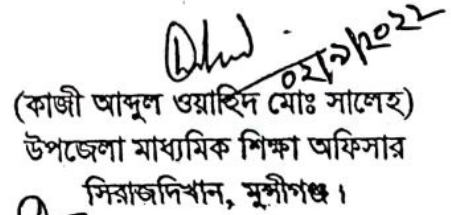 ০২/৯/২০২২
(কাজী আব্দুল ওয়াহিদ মোঃ সালেহ)
উপজেলা মাধ্যমিক শিক্ষা অফিসার
সিরাজদিখান, মুন্সীগঞ্জ।